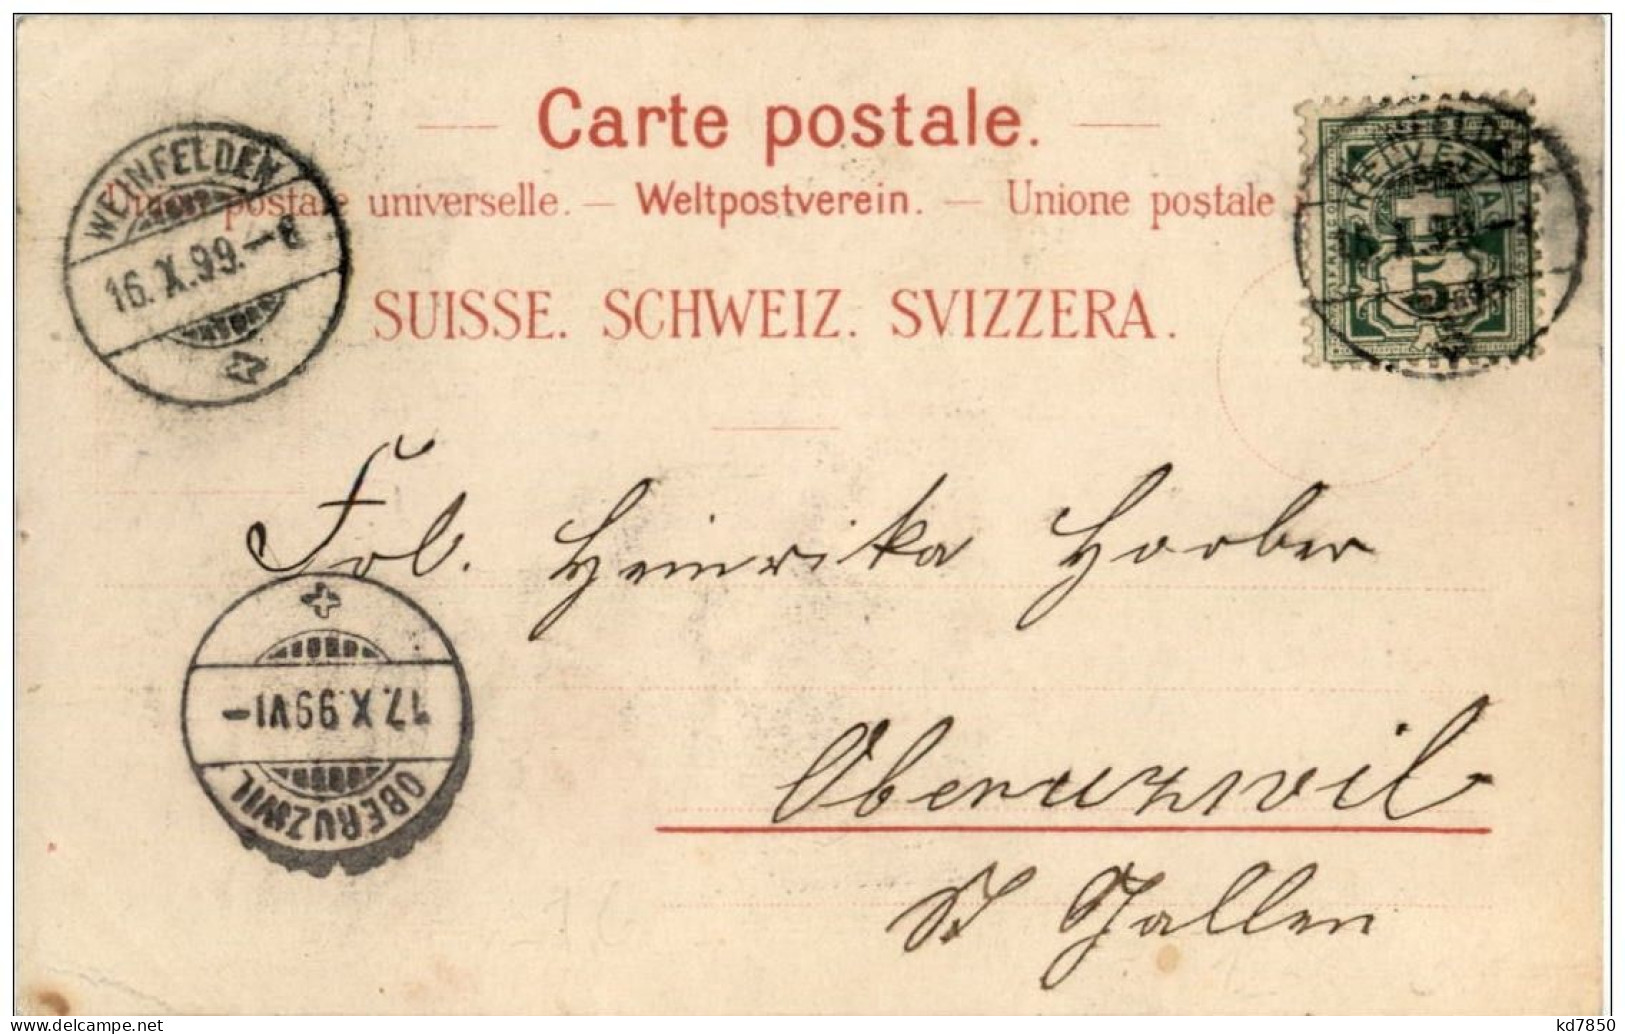 Carte postale.
Union postale universelle. — Weltpostverein. — Unione postale
SUISSE. SCHWEIZ. SVIZZERA.
WEINFELDEN
16. X. 99. – 8
WEINFELDEN
HELVETIA
5
Frl. Heinrika Hoober
17. X. 99 VI –
OBERUZWIL
Oberuzwil
St Gallen
www.delcampe.net
kd7850